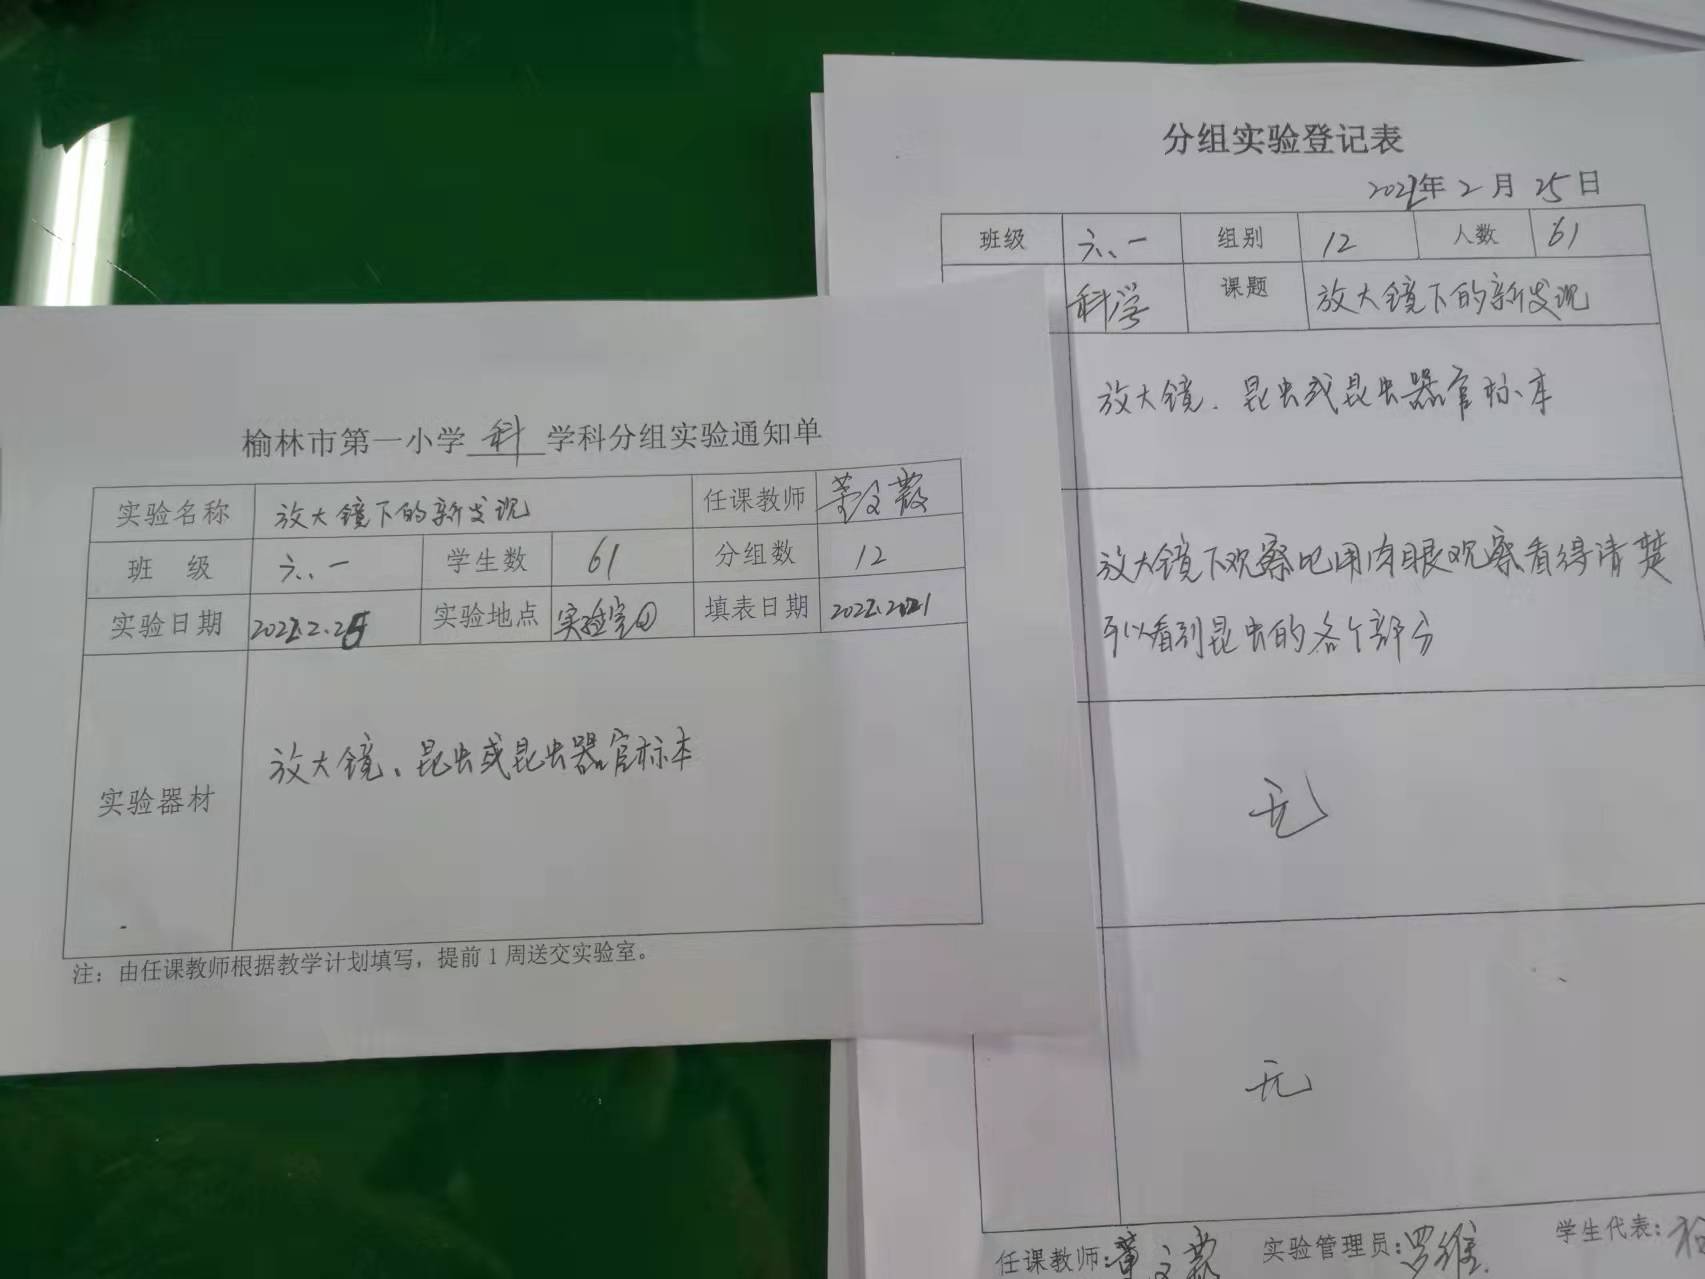 榆林市第一小学 科 学科分组实验通知单
实验名称 放大镜下的新发现 任课教师
班 级 六、一 学生数 61 分组数 12
实验日期 2022.2.25 实验地点 实验室① 填表日期
实验器材 放大镜、昆虫或昆虫器官标本
注：由任课教师根据教学计划填写，提前1周送交实验室。
分组实验登记表
2022年 2 月 25 日
班级 六、一 组别 12 人数 61
科学 课题 放大镜下的新发现
放大镜、昆虫或昆虫器官标本
放大镜下观察比用肉眼观察看得清楚
可以看到昆虫的各个部分
无
无
任课教师: 实验管理员:罗维 学生代表: